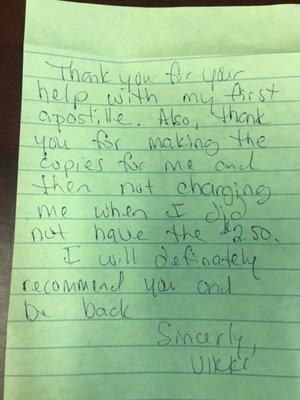 Thank you for your
help with my first
apostille. Also, thank
you for making the
copies for me and
then not charging
me when I did
not have the $2.50.
I will definately
recommend you and
be back.
Sincerly,
Vikki